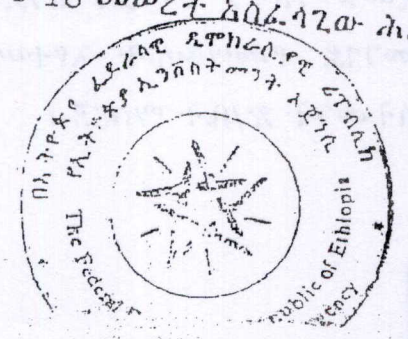 መሠረት አስፈላጊው
በኢትዮጵያ ፌዴራላዊ ዲሞክራሲያዊ ሪፐብሊክ
የኢትዮጵያ ኢንቨስትመንት ኤጀንሲ
The Federal
public of Ethiopia
gency